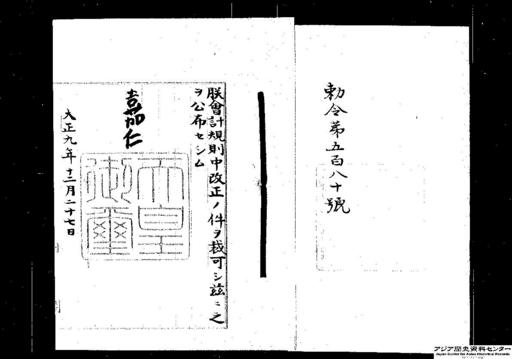 勅令第五百八十號
朕會計規則中改正ノ件ヲ裁可シ茲ニ之
ヲ公布セシム
嘉仁
天皇
御璽
大正九年十二月二十七日
アジア歴史資料センター
Japan Center for Asian Historical Records